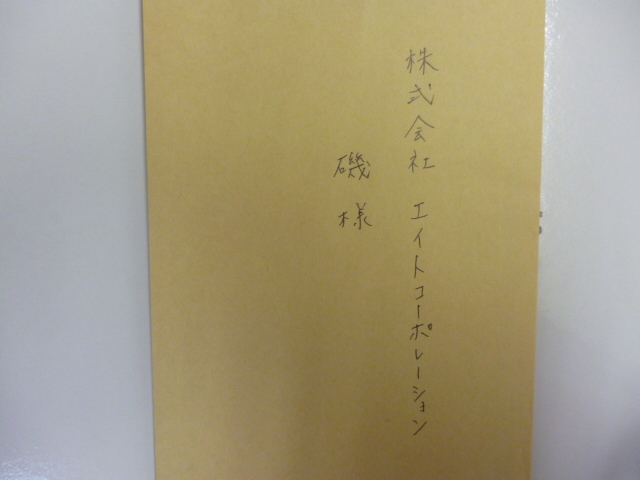 株式会社 エイトコーポレーション
磯 様